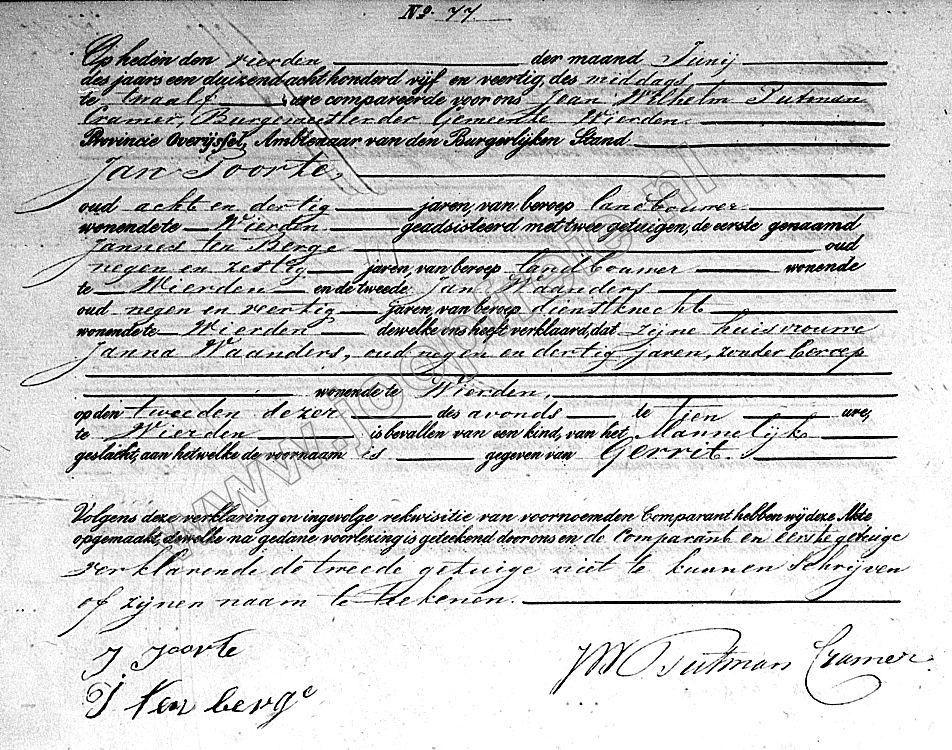 No. 77
Op heden den vierden der maand Junij
des jaars een duizend acht honderd vijf en veertig, des middags
te twaalf ure compareerde voor ons Jean Wilhelm Putman
Cramer, Burgemeister der Gemeente Wierden
Provincie Overijssel, Ambtenaar van den Burgerlijken Stand
Jan Poorte,
oud acht en dertig jaren, van beroep landbouwer
wonende te Wierden geadsisteerd met twee getuigen, de eerste genaamd
Jannes ten Berge oud
negen en zestig jaren, van beroep landbouwer wonende
te Wierden en de tweede Jan Waanders
oud negen en veertig jaren, van beroep dienstknecht
wonende te Wierden dewelke ons heeft verklaard, dat zijne huisvrouwe
Janna Waanders, oud negen en dertig jaren, zonder beroep
wonende te Wierden,
op den tweeden dezer des avonds te tien ure,
te Wierden is bevallen van een kind, van het Mannelijk
geslacht, aan hetwelke de voornaam is gegeven van Gerrit.
Volgens deze verklaring en ingevolge rekwisitie van voornoemden Comparant hebben wij deze Akte
opgemaakt, dewelke na gedane voorlezing is geteekend door ons en de Comparant en eerste getuige
verklarende de tweede getuige niet te kunnen schrijven
of zijnen naam te teekenen.
J. Poorte
J ten berge
JW Putman Cramer